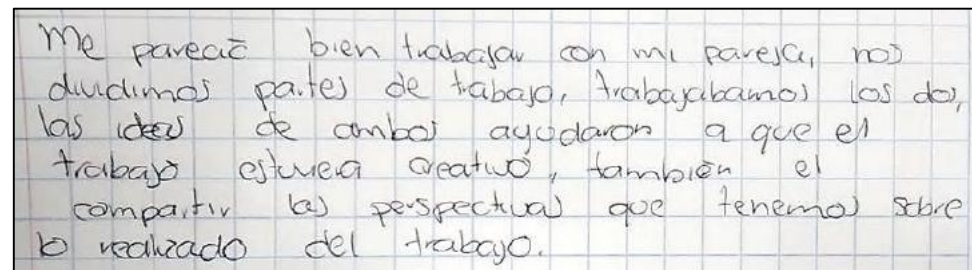 Me pareció bien trabajar con mi pareja, nos
dividimos partes de trabajo, trabajabamos los dos,
las ideas de ambos ayudaron a que el
trabajo estuviera creativo, también el
compartir las perspectivas que tenemos sobre
lo realizado del trabajo.